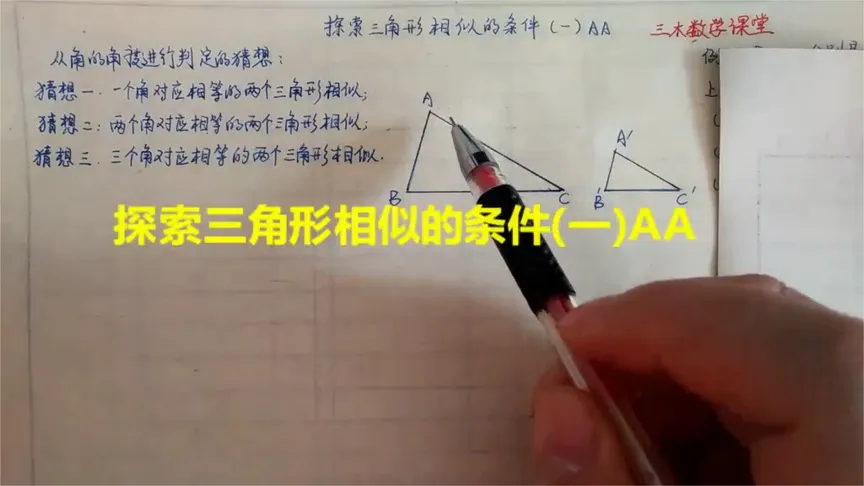 探索三角形相似的条件(一)AA 三木数学课堂
从角的角度进行判定的猜想:
猜想一:一个角对应相等的两个三角形相似;
猜想二:两个角对应相等的两个三角形相似;
猜想三:三个角对应相等的两个三角形相似.
A
B
C
A'
B'
C'
探索三角形相似的条件(一)AA